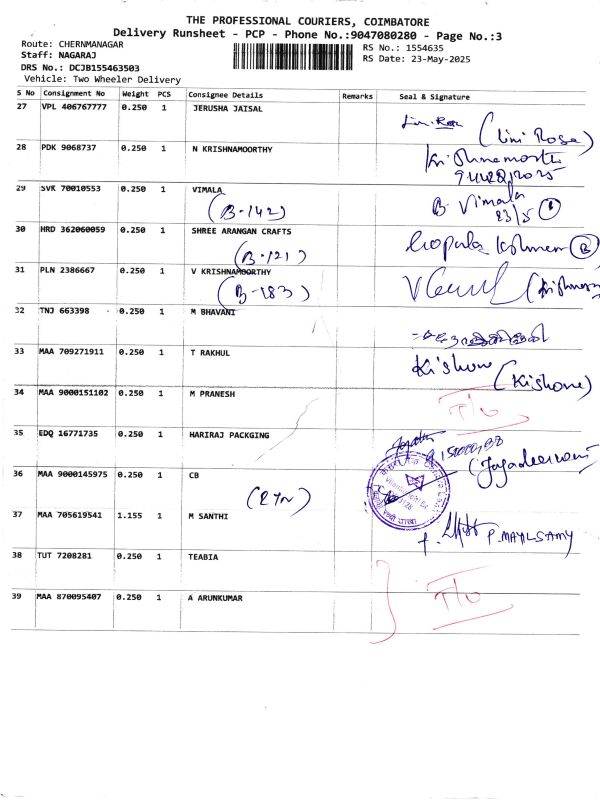 THE PROFESSIONAL COURIERS, COIMBATORE
Delivery Runsheet - PCP - Phone No.:9047080280 - Page No.:3
Route: CHERNMANAGAR
Staff: NAGARAJ
DRS No.: DCJB155463503
Vehicle: Two Wheeler Delivery
RS No.: 1554635
RS Date: 23-May-2025
S No Consignment No Weight PCS Consignee Details Remarks Seal & Signature
27 VPL 406767777 0.250 1 JERUSHA JAISAL
(Lini Rose)
28 PDK 9068737 0.250 1 N KRISHNAMOORTHY
Krishnamoorthi
29 SVK 70010553 0.250 1 VIMALA
(B-142)
B. Vimala
23/5
30 HRD 362060059 0.250 1 SHREE ARANGAN CRAFTS
(B-121)
Gopala Krishnan
31 PLN 2386667 0.250 1 V KRISHNAMOORTHY
(B-183)
32 TNJ 663398 0.250 1 M BHAVANI
33 MAA 709271911 0.250 1 T RAKHUL
Kishore (Kishore)
34 MAA 9000151102 0.250 1 M PRANESH
T/O
35 EDQ 16771735 0.250 1 HARIRAJ PACKGING
(Jagadeeswari)
36 MAA 9000145975 0.250 1 CB
(RTN)
37 MAA 705619541 1.155 1 M SANTHI
P. MAYILSAMY
38 TUT 7208281 0.250 1 TEABIA
39 MAA 870095407 0.250 1 A ARUNKUMAR
T/O